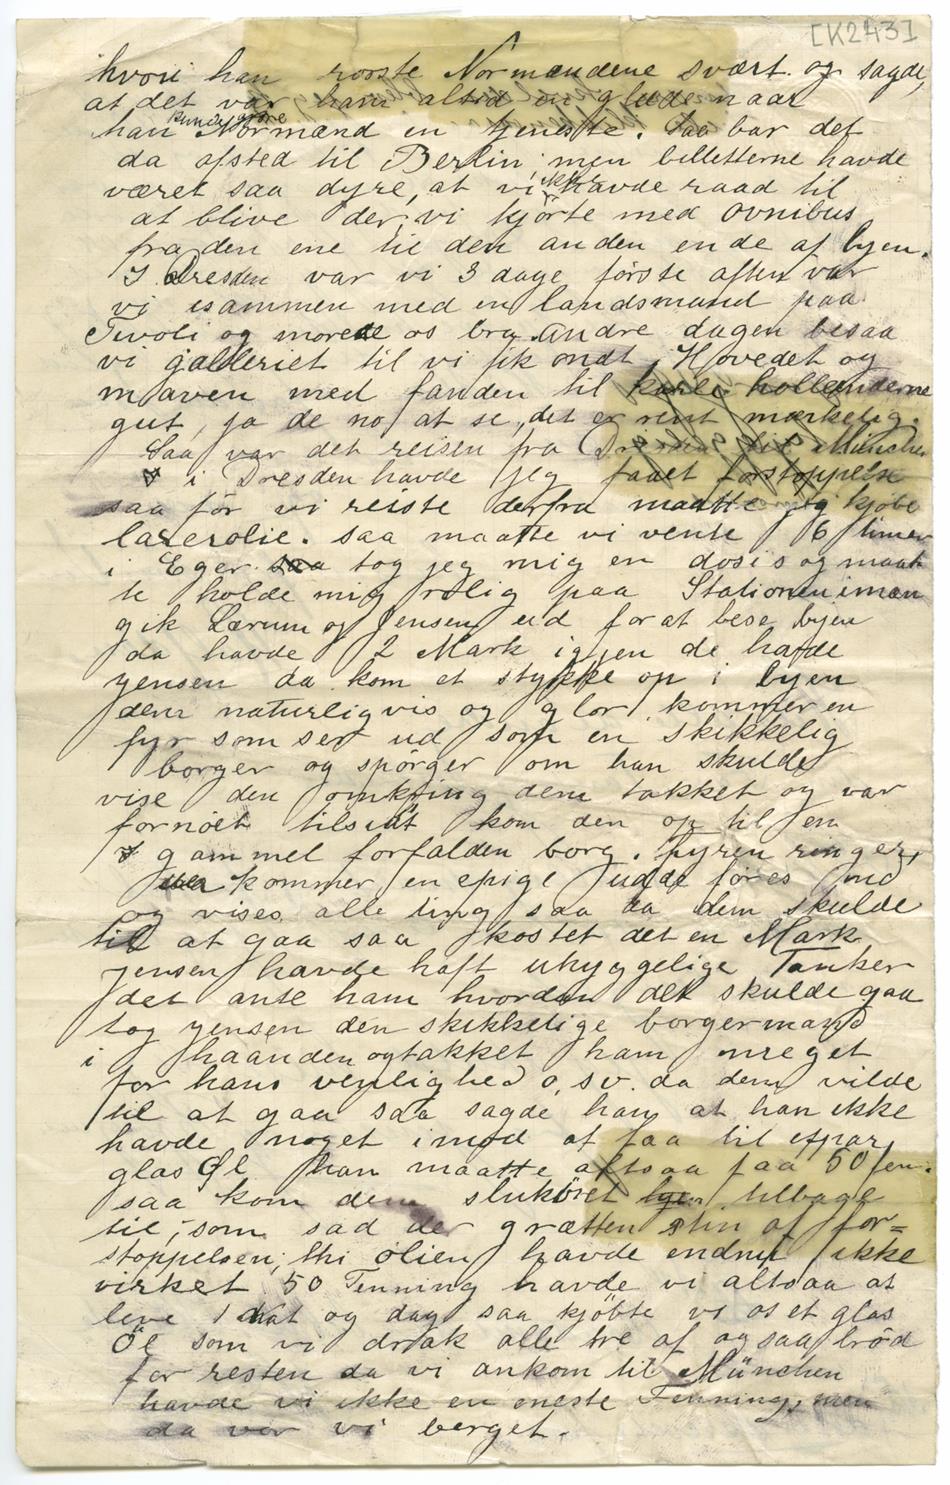 [K243]
hvori han roste Normændene svært og sagde,
at det var ham altid en glæde naar
han kunde gjøre Normænd en tjeneste. Saa bar det
da afsted til Berlin; men billetterne havde
været saa dyre, at vi ikke havde raad til
at blive der, vi kjörte med ovnibus
fra den ene til den anden ende af byen.
I Dresden var vi 3 dage förste aften var
vi isammen med en landsmand paa
Tivoli og morede os bra. andre dagen besaa
vi galleriet til vi fik ondt i Hovedet og
maven med fanden til hollænderne
gut, ja de no at se, det er rent mærkelig.
Saa var det reisen fra Dresden til München
i Dresden havde jeg faaet forstoppelse
saa för vi reiste derfra maatte jeg kjöbe
laxerolie. saa maatte vi vente 6 timer
i Eger saa tog jeg mig en dosis og maat
te holde mig rolig paa Stationen iman
gik Lærum og Jensen ud for at bese byen
da havde 2 Mark igjen de havde
yensen da kom et stykke op i byen
dem naturligvis og glor, kommer en
fyr som ser ud som en skikkelig
borger og spörger om han skulde
vise den omkring dem takket og var
fornöiet tilsidst kom den op til en
gammel forfalden borg. Fyren ringer,
kommer en epige ud de föres ind
og vises alle ting saa da dem skulde
til at gaa saa kostet det en Mark
jensen havde haft uhyggelige Tanker
det ante ham hvordan det skulde gaa
tog yensen den skikkelige borgermand
i haanden og takket ham meget
for hans venlighed o. sv. da dem vilde
til at gaa saa sagde han at han ikke
havde noget imod at faa til etpar
glas Øl han maatte altsaa faa 50 fen.
saa kom dem sluköret tilbage
til, som sad der grætten af for=
stoppelsen; thi olien havde endnu ikke
virket 50 Fenning havde vi altsaa at
leve 1 Nat og dag saa kjöbte vi os et glas
Öl som vi drak alle tre af og saa bröd
for resten da vi ankom til München
havde vi ikke en eneste Fenning, men
da var vi berget.